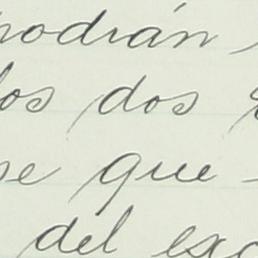 podrán
los dos
se que
del exc